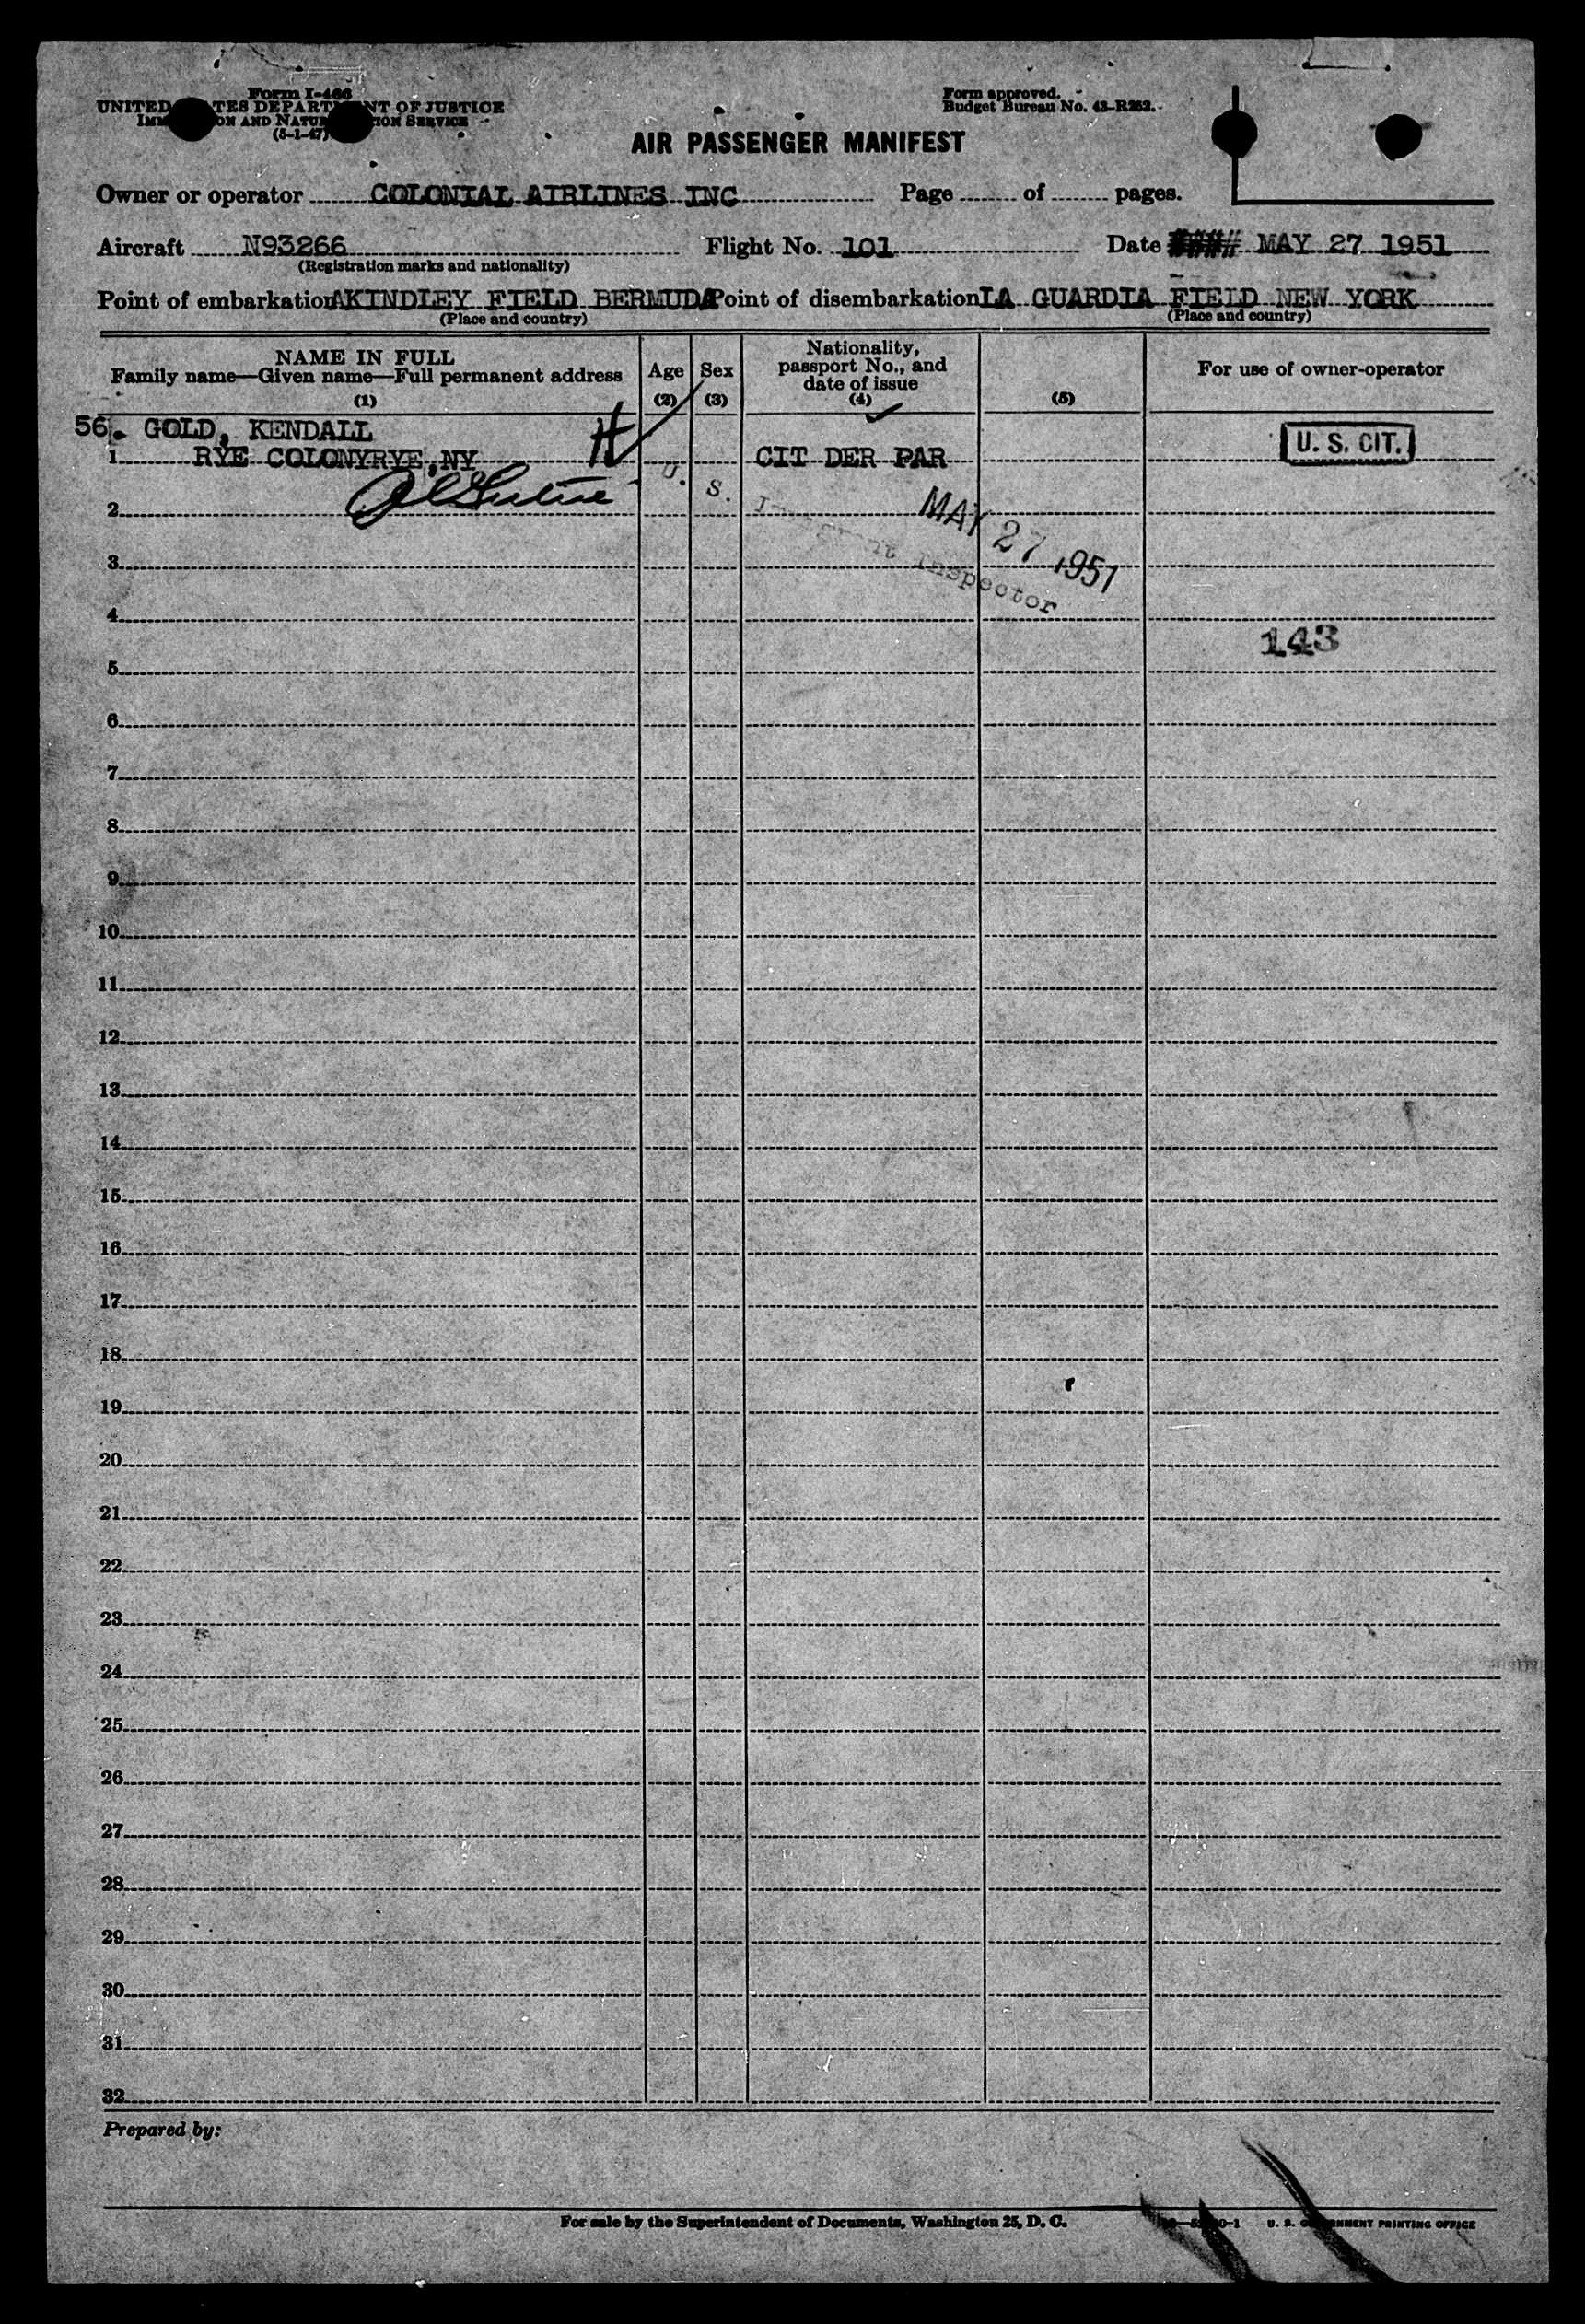 Form I-466
UNITED TES DEPART NT OF JUSTICE
IMM ON AND NATUR TION SERVICE
(5-1-47)
Form approved.
Budget Bureau No. 43-R253.
AIR PASSENGER MANIFEST
Owner or operator COLONIAL AIRLINES INC Page of pages.
Aircraft N93266 Flight No. 101 Date MAY 27 1951
(Registration marks and nationality)
Point of embarkation KINDLEY FIELD BERMUDA Point of disembarkation LA GUARDIA FIELD NEW YORK
(Place and country) (Place and country)
NAME IN FULL
Family name—Given name—Full permanent address
(1)
Age
(2)
Sex
(3)
Nationality,
passport No., and
date of issue
(4)
(5)
For use of owner-operator
56. GOLD, KENDALL H
1 RYE COLONYRYE,NY CIT DER PAR U. S. CIT.
U. S. Inspector
MAY 27 1951
2
3
4
143
5
6
7
8
9
10
11
12
13
14
15
16
17
18
19
20
21
22
23
24
25
26
27
28
29
30
31
32
Prepared by:
For sale by the Superintendent of Documents, Washington 25, D. C.
U. S. GOVERNMENT PRINTING OFFICE